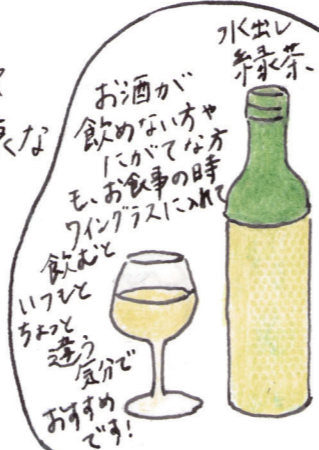 水出し
緑茶
お酒が
飲めない方や
にがてな方
も、お食事の時
ワイングラスに入れて
飲むと
いつもと
ちょっと
違う
気分で
おすすめ
です!